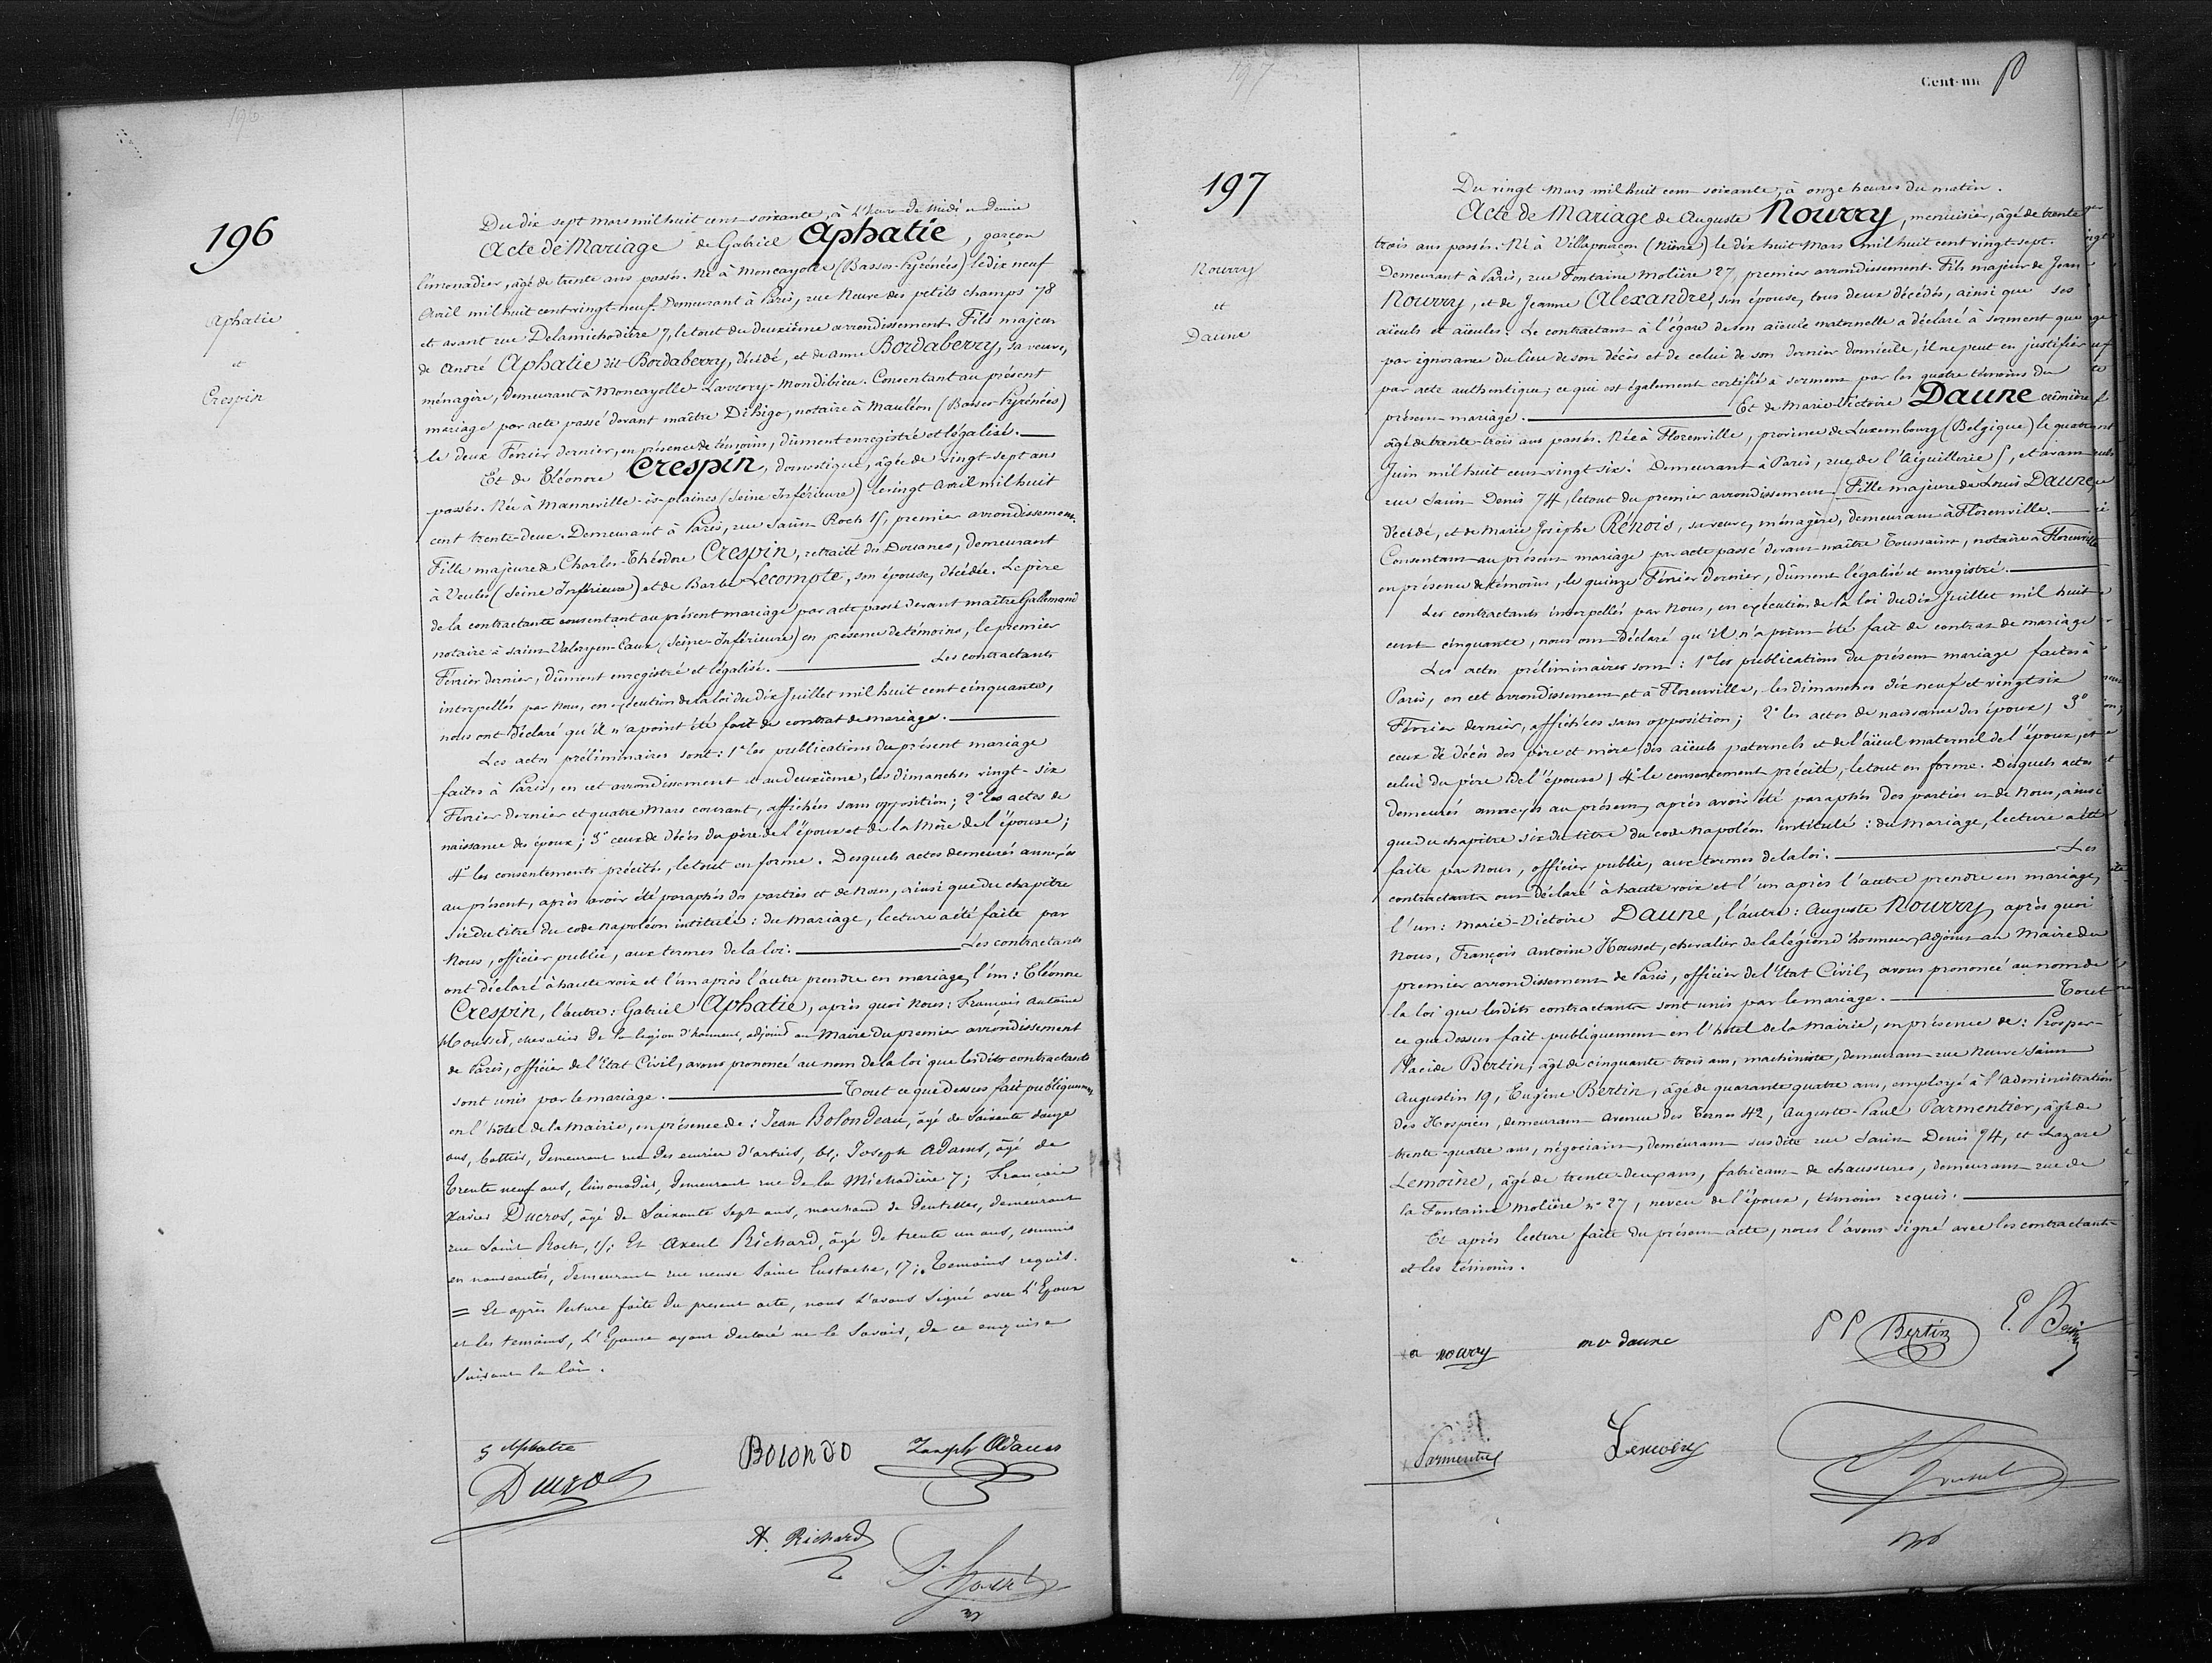 196
196
Aphatie
et
Crespin
Du dix sept mars mil huit cent soixante, à l'heure de midi et demie
Acte de Mariage de Gabriel Aphatie, garçon
limonadier, âgé de trente ans passés. Né à Moncayolle (Basses-Pyrénées) le dix neuf
Avril mil huit cent vingt-neuf. Demeurant à Paris, rue Neuve des petits champs 78
et avant rue Delamichodière 7, le tout du deuxième arrondissement. Fils majeur
de André Aphatie dit Bordaberry, décédé, et de Anne Bordaberry, sa veuve,
ménagère, demeurant à Moncayolle-Larrory-Mondibieu. Consentant au présent
mariage par acte passé devant maître Dihigo, notaire à Mauléon (Basses-Pyrénées)
le deux Février dernier, en présence de témoins, dûment enregistré et légalisé.
Et de Eléonore Crespin, domestique, âgée de vingt-sept ans
passés. Née à Manneville-ès-plaines (Seine Inférieure) le vingt avril mil huit
cent trente-deux. Demeurant à Paris, rue Saint Roch 15, premier arrondissement.
Fille majeure de Charles-Théodore Crespin, retraité des Douanes, demeurant
à Veules (Seine Inférieure) et de Barbe Lecompte, son épouse, décédée. Le père
de la contractante consentant au présent mariage par acte passé devant maître Gallemand
notaire à Saint-Valery-en-Caux (Seine-Inférieure) en présence de témoins, le premier
Février dernier, dûment enregistré et légalisé. Les contractants
interpellés par Nous, en exécution de la loi du dix Juillet mil huit cent cinquante,
nous ont déclaré qu'il n'a point été fait de contrat de mariage.
Les actes préliminaires sont: 1° les publications du présent mariage
faites à Paris, en cet arrondissement et au deuxième, les dimanches vingt-six
Février dernier et quatre Mars courant, affichées sans opposition; 2° les actes de
naissance des époux; 3° ceux de décès du père de l'époux et de la Mère de l'épouse;
4° les consentements précités, le tout en forme. Desquels actes demeurés annexés
au présent, après avoir été paraphés des parties et de Nous, ainsi que du chapitre
six du titre du code Napoléon intitulé: du Mariage, lecture a été faite par
Nous, officier public, aux termes de la loi. Les contractants
ont déclaré à haute voix et l'un après l'autre prendre en mariage, l'un: Eléonore
Crespin, l'autre: Gabriel Aphatie, après quoi Nous: François Antoine
Housset, chevalier de la légion d'honneur, adjoint au Maire du premier arrondissement
de Paris, officier de l'Etat Civil, avons prononcé au nom de la loi que lesdits contractants
sont unis par le mariage. Tout ce que dessus fait publiquement
en l'hôtel de la Mairie, en présence de: Jean Bolondeau, âgé de soixante douze
ans, bottier, demeurant rue des écuries d'artois, 61; Joseph Adams, âgé de
trente neuf ans, limonadier, demeurant rue de la Michodière 7; François
Xavier Ducros, âgé de soixante sept ans, marchand de dentelles, demeurant
rue Saint Roch, 15; Et Axeul Richard, âgé de trente un ans, commis
en nouveautés, demeurant rue neuve Saint Eustache, 17; Témoins requis.
= Et après lecture faite du présent acte, nous l'avons signé avec l'Epoux
et les témoins, L'Epouse ayant déclaré ne le savoir, de ce enquise
suivant la loi.
g Aphatie
BOLONDO
Joseph Adams
Ducros
A. Richard
197
Cent-un
197
Nourry
et
Daune
Du vingt Mars mil huit cent soixante, à onze heures du matin.
Acte de Mariage de Auguste Nourry, menuisier, âgé de trente
trois ans passés. Né à Villapourçon (Nièvre) le dix huit Mars mil huit cent vingt-sept.
Demeurant à Paris, rue Fontaine Molière 27, premier arrondissement. Fils majeur de Jean
Nourry, et de Jeanne Alexandre, son épouse, tous deux décédés, ainsi que ses
aïeuls et aïeules. Le contractant à l'égard de son aïeule maternelle a déclaré à serment que
par ignorance du lieu de son décès et de celui de son dernier domicile, il ne peut en justifier
par acte authentique; ce qui est également certifié à serment par les quatre témoins du
présent mariage. Et de Marie-Victoire Daune crémière
âgée de trente-trois ans passés. Née à Florenville, province de Luxembourg (Belgique) le quatre
Juin mil huit cent vingt six. Demeurant à Paris, rue de l'Aiguillerie 5, et avant
rue Saint Denis 74, le tout du premier arrondissement. Fille majeure de Louis Daune,
décédé, et de Marie Josèphe Rénois, sa veuve, ménagère, demeurant à Florenville.
Consentant au présent mariage par acte passé devant maître Toussaint, notaire à Florenville
en présence de témoins, le quinze Février dernier, dûment légalisé et enregistré.
Les contractants interpellés par Nous, en exécution de la loi du dix Juillet mil huit
cent cinquante, nous ont déclaré qu'il n'a point été fait de contrat de mariage
Les actes préliminaires sont: 1° les publications du présent mariage faites à
Paris, en cet arrondissement et à Florenville, les dimanches dix neuf et vingt six
Février dernier, affichées sans opposition; 2° les actes de naissance des époux; 3°
ceux de décès des père et mère, des aïeuls paternels et de l'aïeul maternel de l'époux, et
celui du père de l'épouse; 4° le consentement précité, le tout en forme. Desquels actes
demeurés annexés au présent, après avoir été paraphés des parties et de Nous, ainsi
que du chapitre six du titre du code Napoléon intitulé: du Mariage, lecture a été
faite par Nous, officier public, aux termes de la loi. Les
contractants ont déclaré à haute voix et l'un après l'autre prendre en mariage,
l'un: Marie-Victoire Daune, l'autre: Auguste Nourry, après quoi
Nous, François Antoine Housset, chevalier de la légion d'honneur, adjoint au Maire du
premier arrondissement de Paris, officier de l'Etat Civil, avons prononcé au nom de
la loi que lesdits contractants sont unis par le mariage. Tout
ce que dessus fait publiquement en l'hôtel de la Mairie, en présence de: Prosper-
Placide Bertin, âgé de cinquante trois ans, machiniste, demeurant rue Neuve Saint
Augustin 19, Eugène Bertin, âgé de quarante quatre ans, employé à l'administration
des Hospices, demeurant avenue des Ternes 42, Auguste-Paul Parmentier, âgé de
trente-quatre ans, négociant, demeurant susdite rue Saint Denis 74, et Lazare
Lemoine, âgé de trente-deux ans, fabricant de chaussures, demeurant rue de
la Fontaine Molière n° 27, neveu de l'époux, témoins requis.
Et après lecture faite du présent acte, nous l'avons signé avec les contractants
et les témoins.
a nourry
m v daune
P P Bertin
E. Bertin
Parmentier
Lemoine